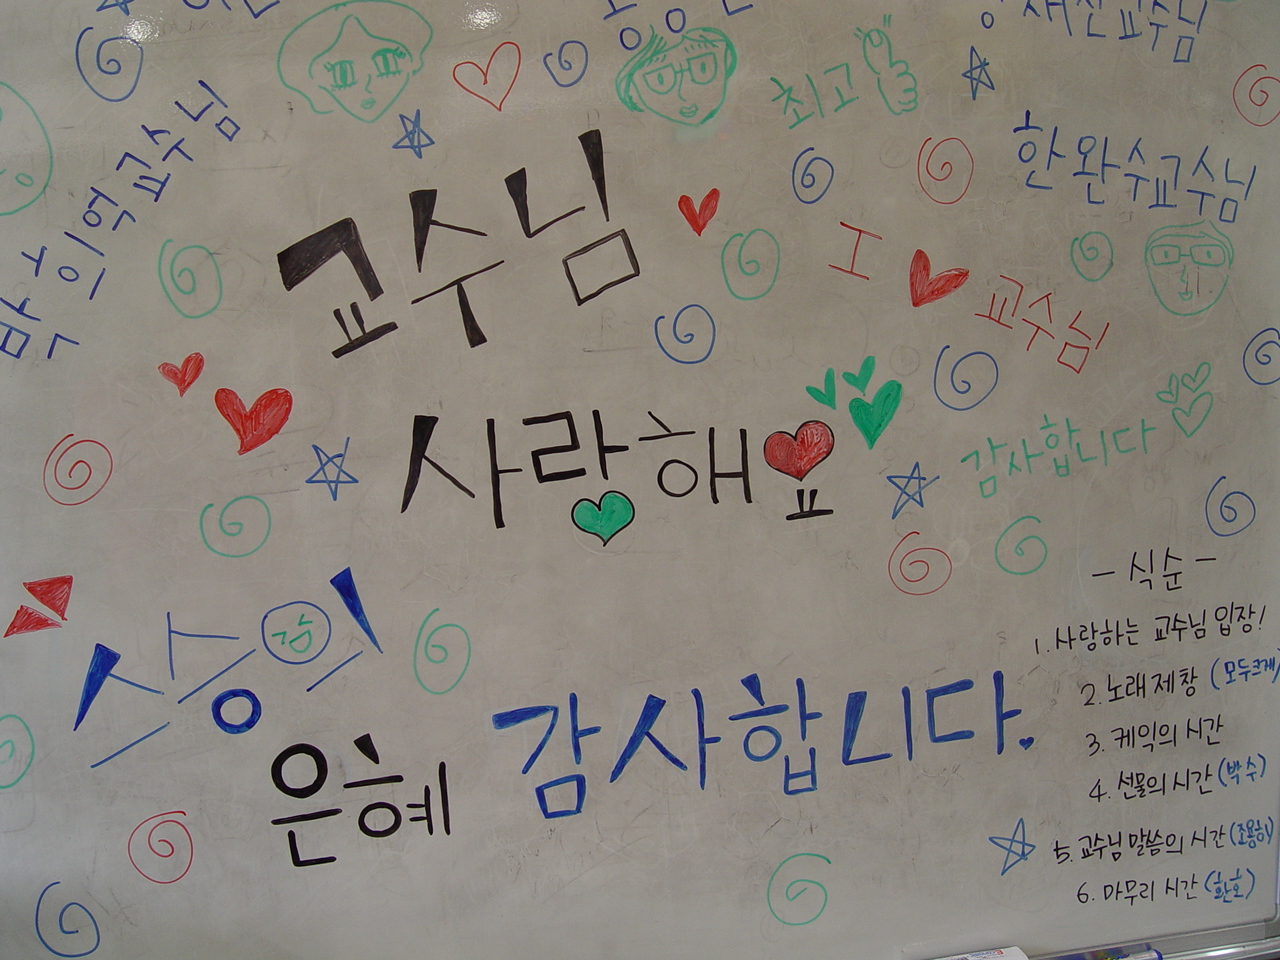 최고
한완수교수님
이억교수님
교수님
I 교수님
사랑해요
감사합니다
스승의
은혜 감사합니다.
- 식순 -
1. 사랑하는 교수님 입장!
2. 노래제창 (모두크게)
3. 케익의 시간
4. 선물의 시간 (박수)
5. 교수님 말씀의 시간 (조용히)
6. 마무리 시간 (환호)